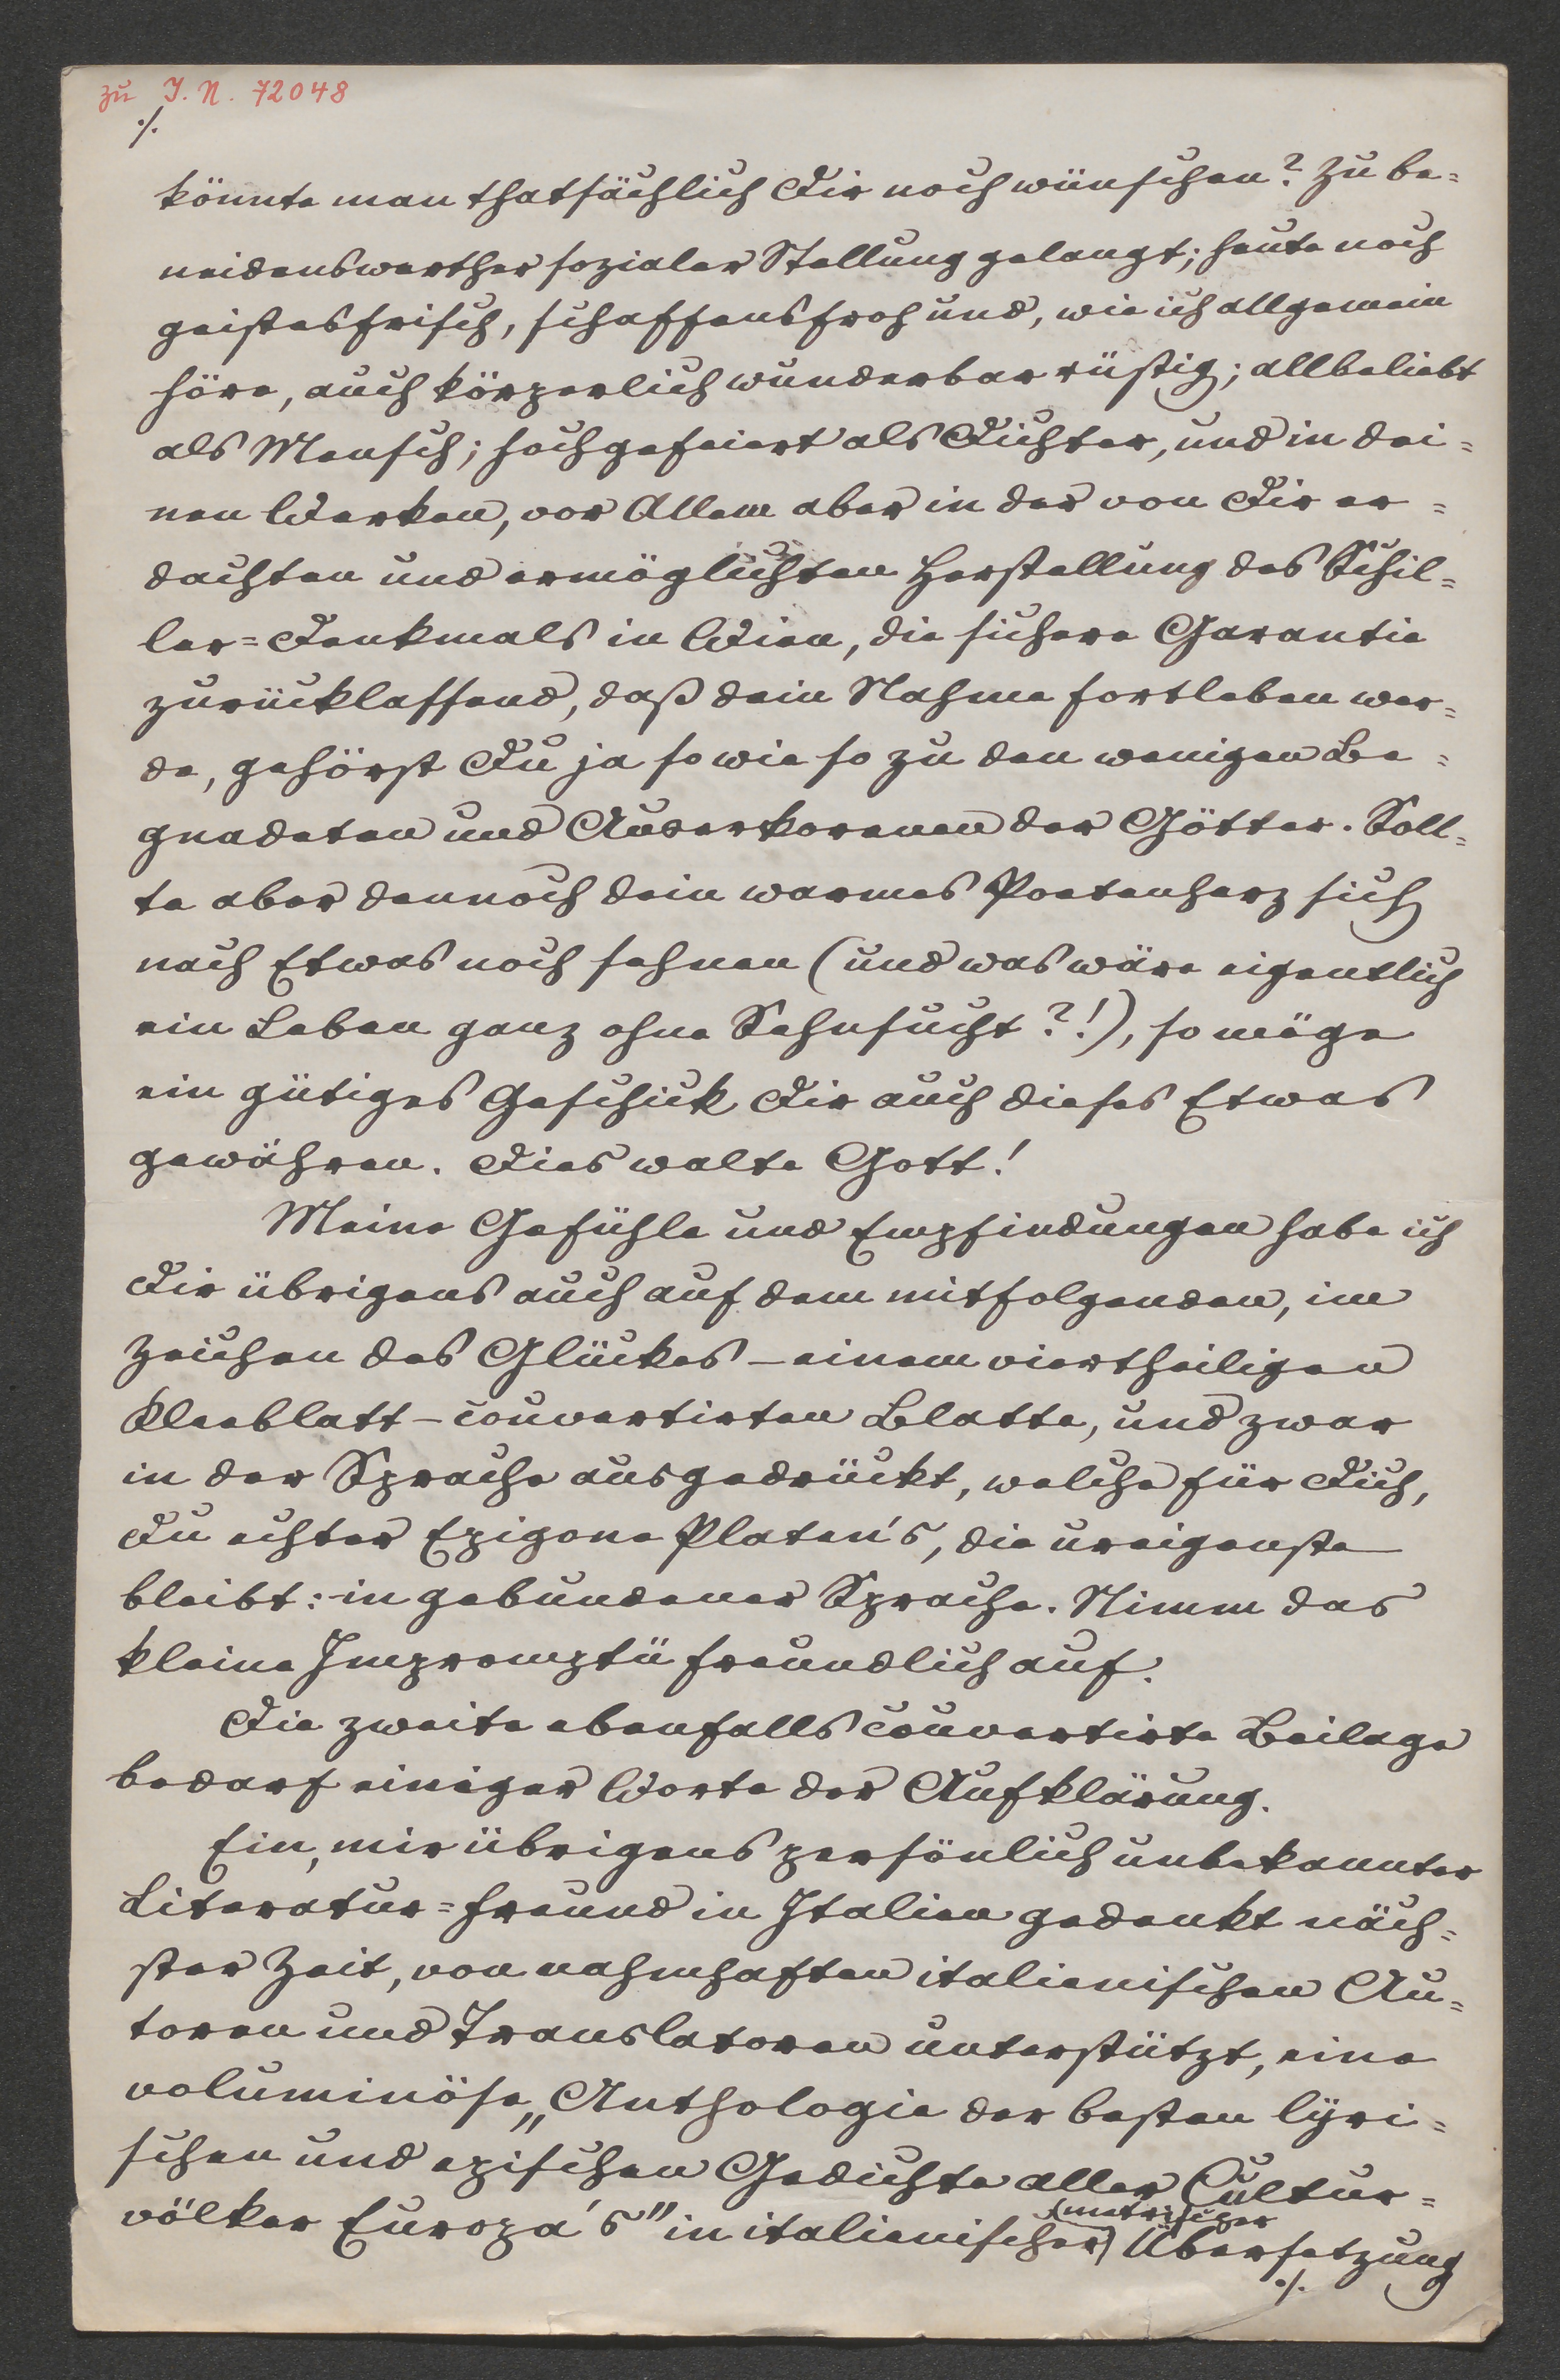 zu I. N. 72048
./.
könnte man thatsächlich Dir noch wünschen? Zu be=
neidenswerther sozialer Stellung gelangt; heute noch
geistesfrisch, schaffensfroh und, wie ich allgemein
höre, auch körperlich wunderbar rüstig; allbeliebt
als Mensch; hochgefeiert als Dichter, und in dei=
nen Werken, vor Allem aber in der von Dir er=
dachten und ermöglichten Herstellung des Schil=
ler=Denkmals in Wien, die sichere Garantie
zurücklassend, daß dein Nahme fortleben wer=
de, gehörst Du ja so wie so zu den wenigen Be=
gnadeten und Auserkorenen der Götter. Soll=
te aber dennoch dein warmes Poetenherz sich
nach Etwas noch sehnen (und was wäre eigentlich
ein Leben ganz ohne Sehnsucht?!), so möge
ein gütiges Geschick Dir auch dieses Etwas
gewähren. Dies walte Gott!
Meine Gefühle und Empfindungen habe ich
Dir übrigens auch auf dem mitfolgenden, im
Zeichen des Glückes – einem viertheiligen
Kleeblatt – couvertirten Blatte, und zwar
in der Sprache ausgedrückt, welche für Dich,
Du echter Epigone Platen's, die ureigenste
bleibt: in gebundener Sprache. Nimm das
kleine Impromptü freundlich auf.
Die zweite ebenfalls couvertirte Beilage
bedarf einiger Worte der Aufklärung.
Ein, mir übrigens persönlich unbekannter
Literatur=Freund in Italien gedenkt näch=
ster Zeit, von nahmhaften italienischen Au=
toren und Translatoren unterstützt, eine
voluminöse „Anthologie der besten lyri=
schen und epischen Gedichte aller Cultur=
völker Europa's" in italienischer metrischer Übersetzung
./.